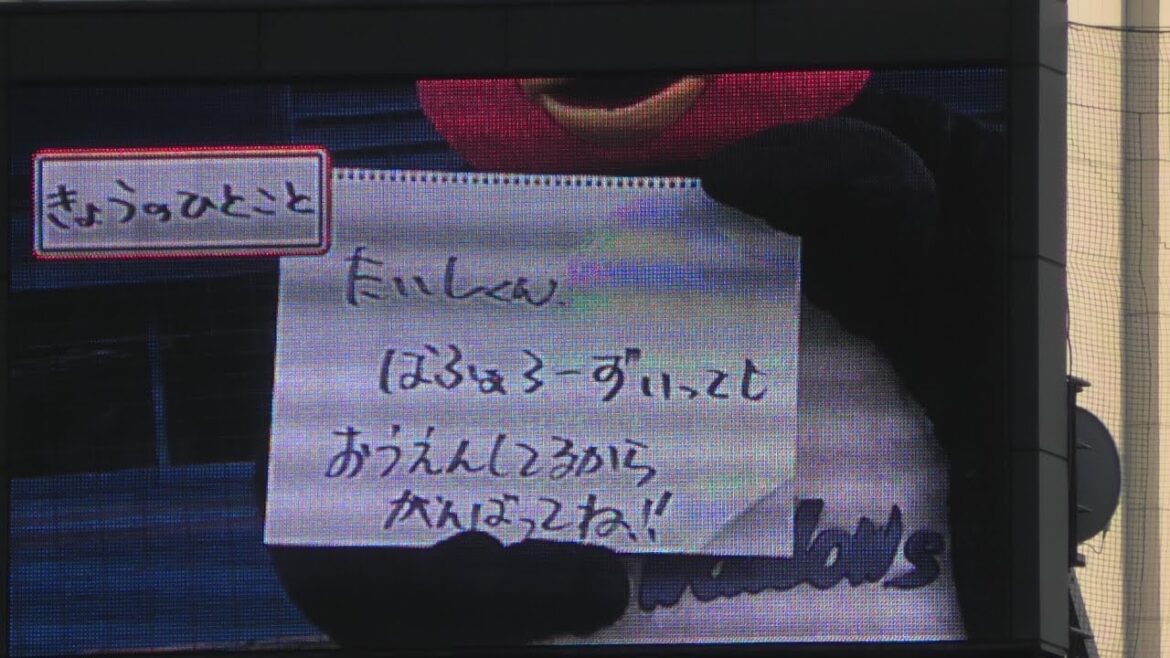 きょうのひとこと
たいしくん、
ばふぁろーずいっても
おうえんしてるから
がんばってね!!